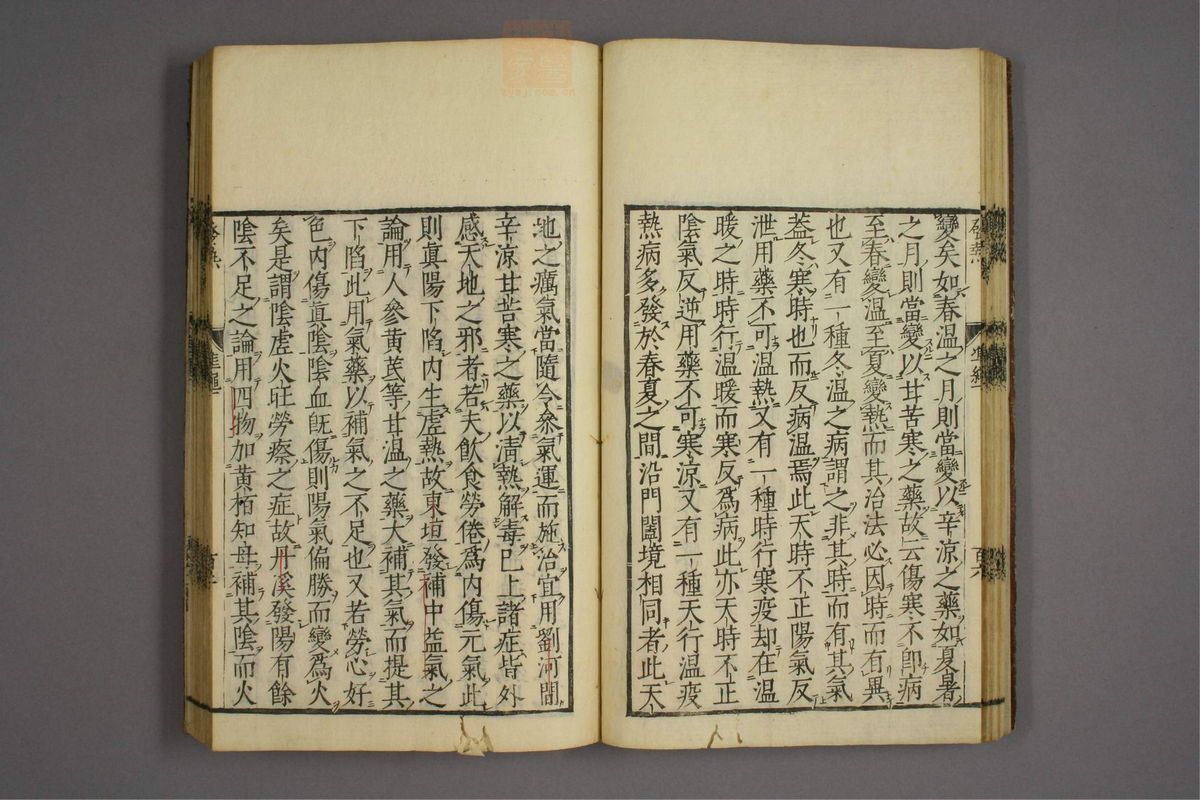 變矣如春溫之月則當變以辛涼之藥如夏暑
之月則當變以甘苦寒之藥故云傷寒不卽病
至春變溫至夏變熱而其治法必因時而有異
也又有一種冬溫之病謂之非其時而有其氣
葢冬寒時也而反病溫焉此天時不正陽氣反
泄用藥不可溫熱又有一種時行寒疫却在溫
暖之時時行溫暖而寒反爲病此亦天時不正
陰氣反逆用藥不可寒涼又有一種天行溫疫
熱病多發於春夏之間沿門闔境相同者此天
地之癘氣當隨令參氣運而施治宜用劉河間
辛涼甘苦寒之藥以淸熱解毒已上諸症皆外
感天地之邪者若夫飲食勞倦爲内傷元氣此
則眞陽下陷内生虛熱故東垣發補中益氣之
論用人參黃芪等甘溫之藥大補其氣而提其
下陷此用氣藥以補氣之不足也又若勞心好
色内傷眞陰陰血旣傷則陽氣偏勝而變爲火
矣是謂陰虛火旺勞瘵之症故丹溪發陽有餘
陰不足之論用四物加黃栢知母補其陰而火